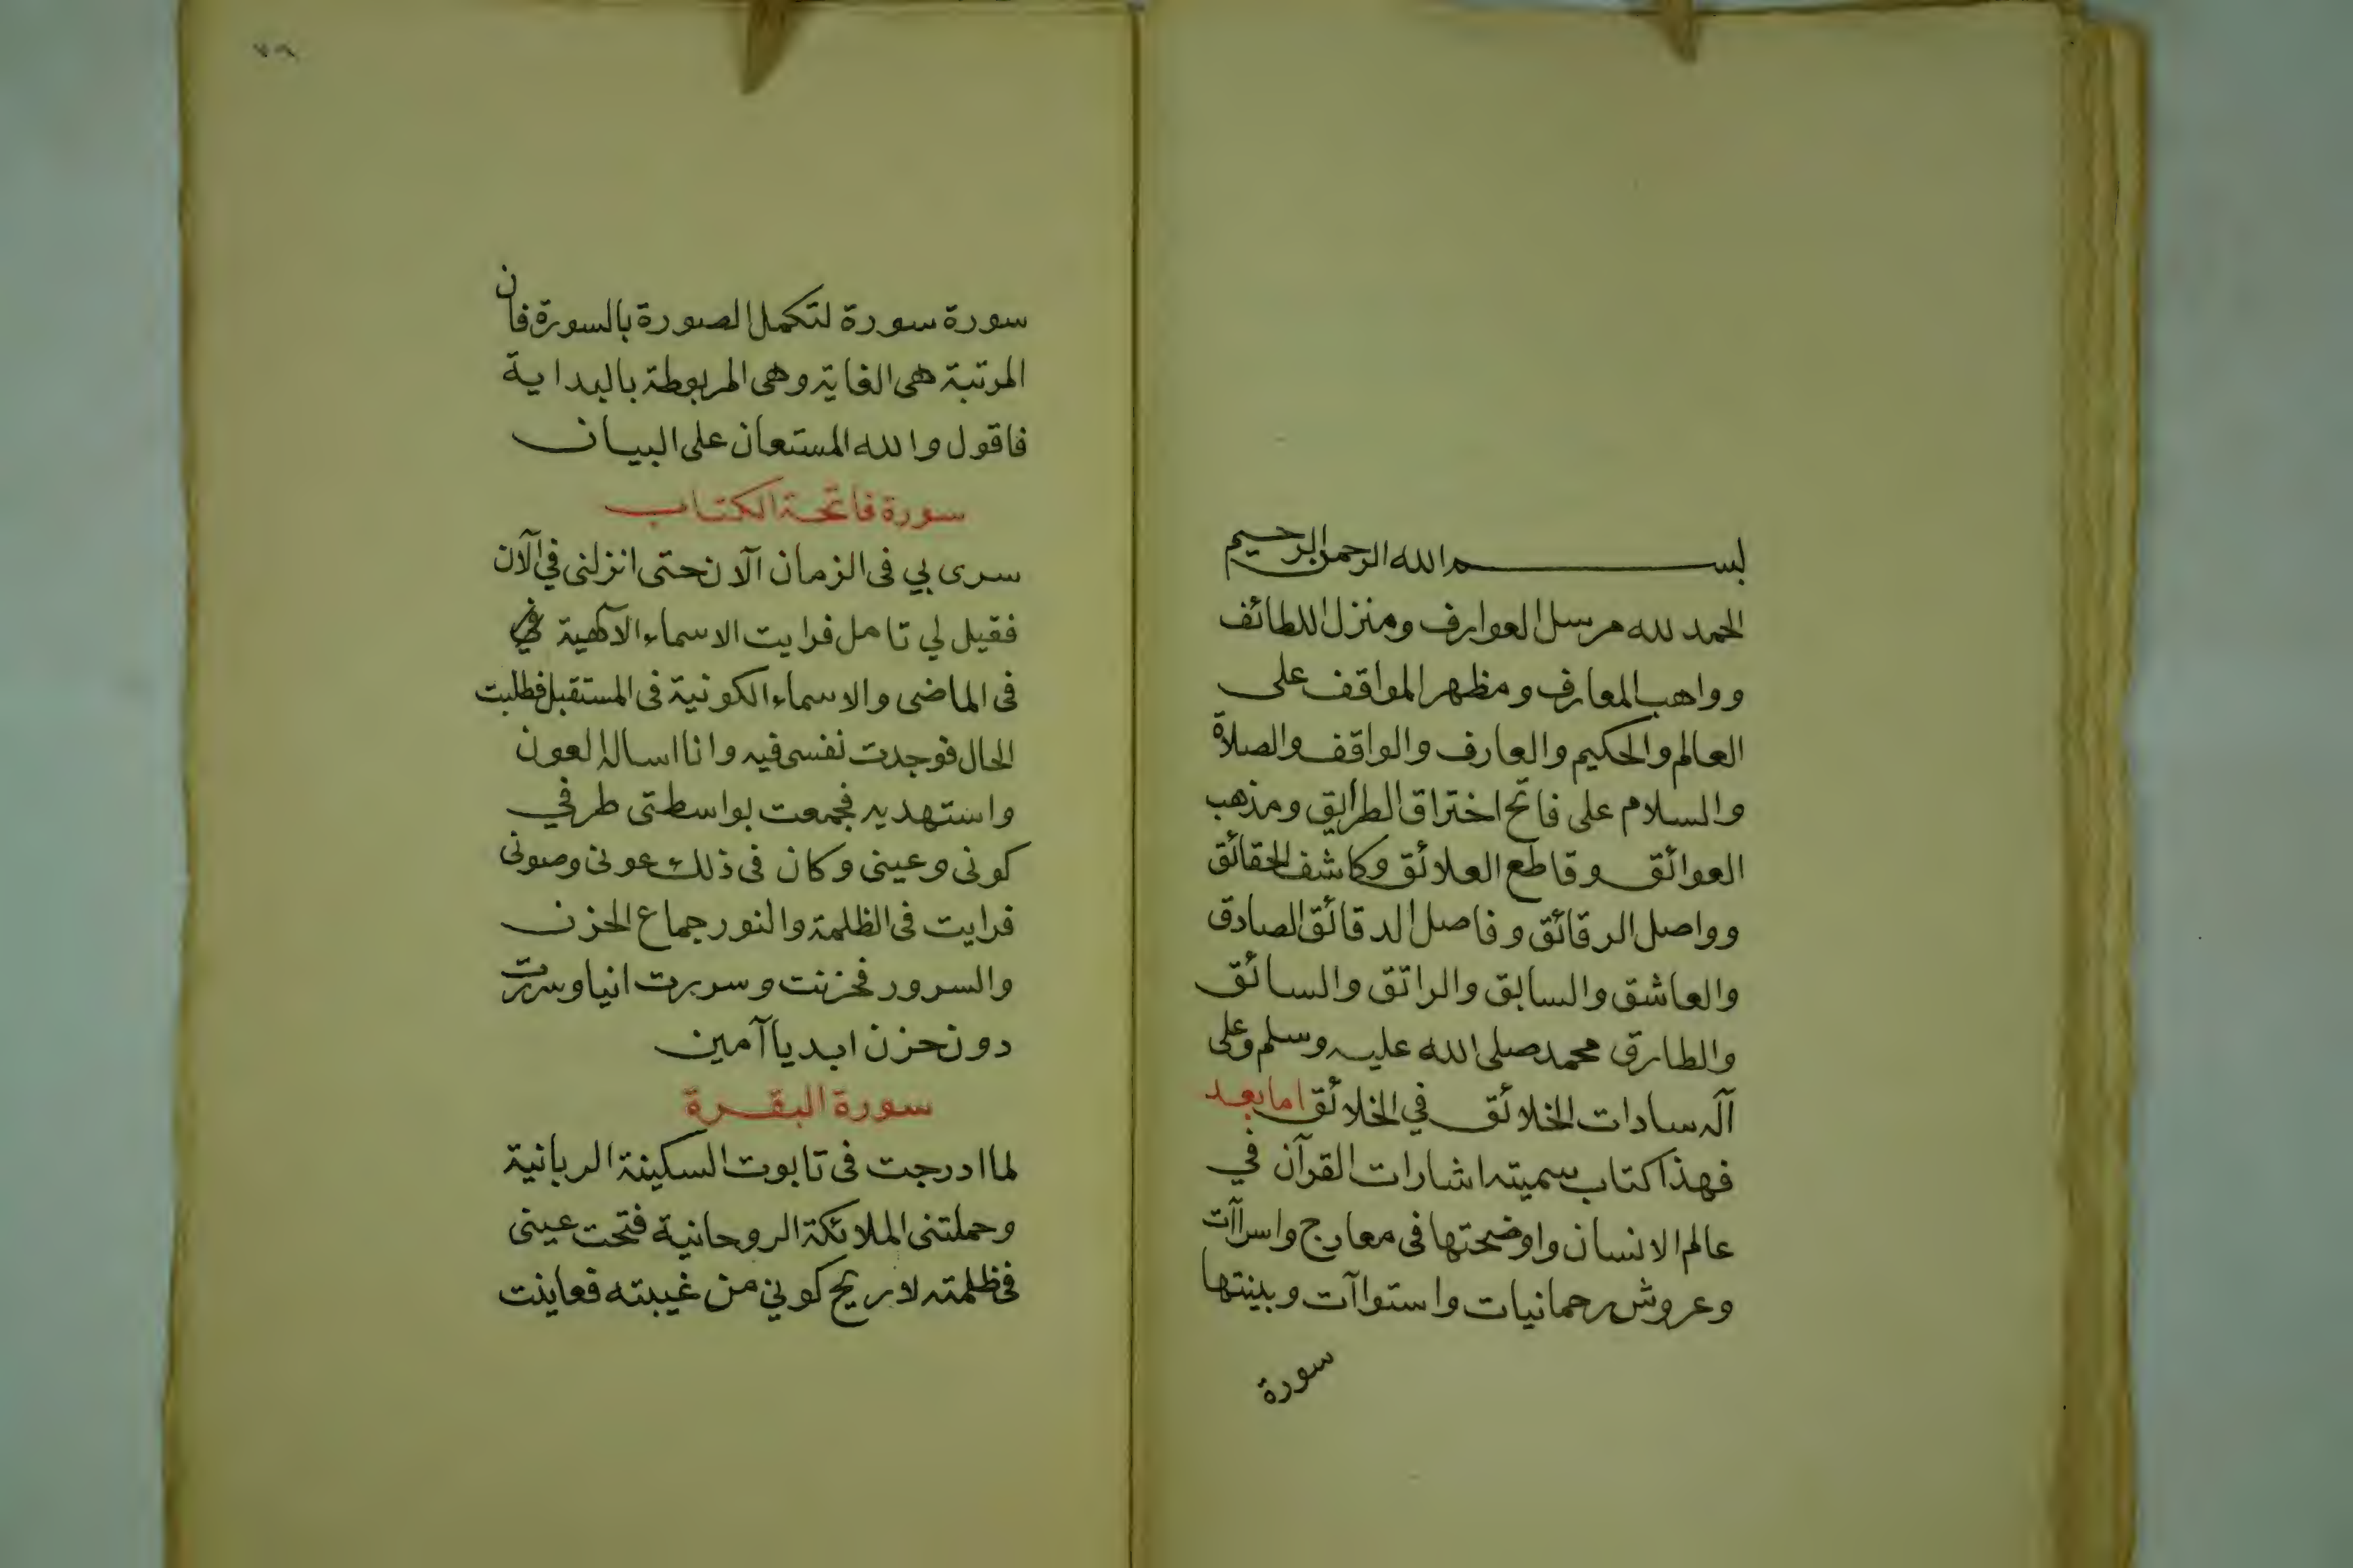 بسم الله الرحمن الرحيم
الحمد لله مرسل العوارف ومنزل اللطائف
وواهب المعارف ومظهر المواقف على
العالم والحكيم والعارف والواقف والصلاة
والسلام على فاتح اختراق الطرايق ومذهب
العوائق وقاطع العلائق وكاشف الحقائق
وواصل الرقائق وفاصل الدقائق الصادق
والعاشق والسابق والراتق والسائق
والطارق محمد صلى الله عليه وسلم وعلى
آله سادات الخلائق في الخلائق اما بعد
فهذا كتاب سميته اشارات القرآن في
عالم الانسان واوضحتها فى معارج واسراآت
وعروش رحمانيات واستواآت وبينتها
سورة
٧٩
سورة سورة لتكمل الصورة بالسورة فان
المرتبة هى الغاية وهى المربوطة بالبداية
فاقول والله المستعان على البيان
سورة فاتحة الكتاب
سرى بي فى الزمان آلان حتى انزلنى في آلان
فقيل لي تامل فرايت الاسماء الآلهية
فى الماضى والاسماء الكونية فى المستقبل فطلبت
الحال فوجدت نفسى فيه وانا اساله العون
واستهديه فجمعت بواسطتى طرفي
كونى وعينى وكان فى ذلك عونى وصونى
فرايت فى الظلمة والنور جماع الحزن
والسرور فحزنت وسررت انيا وسررت
دون حزن ابديا آمين
سورة البقرة
لما ادرجت فى تابوت السكينة الربانية
وحملتنى الملائكة الروحانية فتحت عينى
فى ظلمته لاريح كوني من غيبته فعاينت